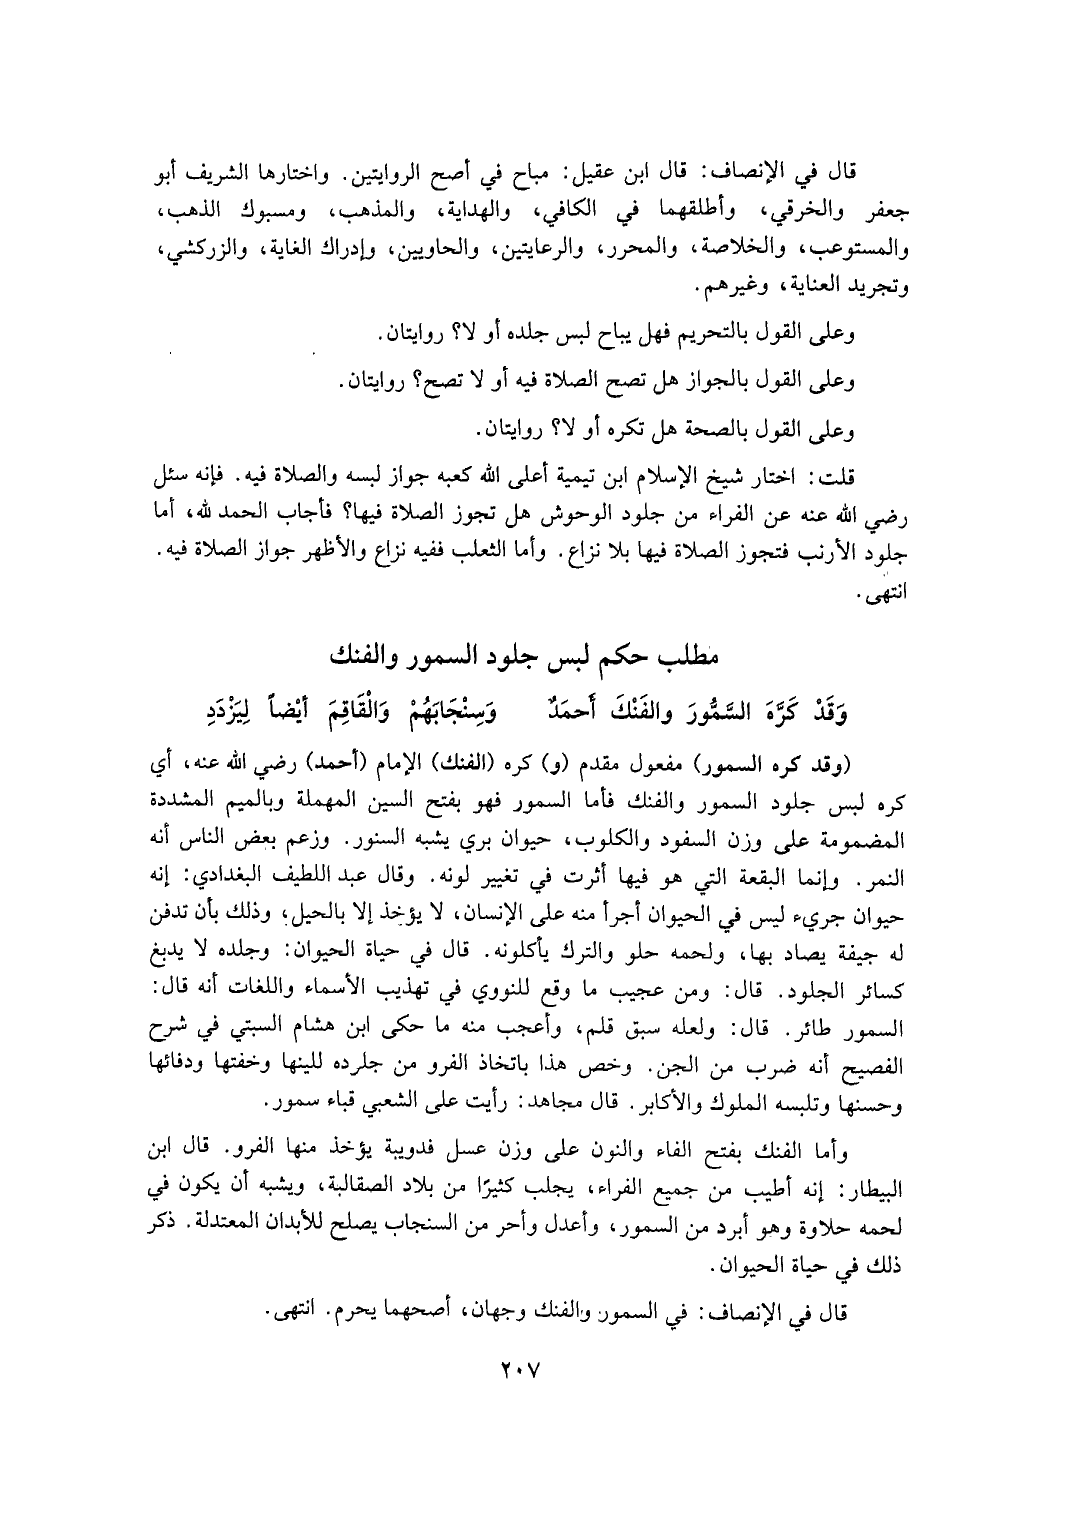 قال في الإنصاف: قال ابن عقيل: مباح في أصح الروايتين. واختارها الشريف أبو
جعفر والخرقي، وأطلقهما في الكافي، والهداية، والمذهب، ومسبوك الذهب،
والمستوعب، والخلاصة، والمحرر، والرعايتين، والحاويين، وإدراك الغاية، والزركشي،
وتجريد العناية، وغيرهم.
وعلى القول بالتحريم فهل يباح لبس جلده أو لا؟ روايتان.
وعلى القول بالجواز هل تصح الصلاة فيه أو لا تصح؟ روايتان.
وعلى القول بالصحة هل تكره أو لا؟ روايتان.
قلت: اختار شيخ الإسلام ابن تيمية أعلى الله كعبه جواز لبسه والصلاة فيه. فإنه سئل
رضي الله عنه عن الفراء من جلود الوحوش هل تجوز الصلاة فيها؟ فأجاب الحمد لله، أما
جلود الأرنب فتجوز الصلاة فيها بلا نزاع. وأما الثعلب ففيه نزاع والأظهر جواز الصلاة فيه.
انتهى.
مطلب حكم لبس جلود السمور والفنك
وَقَدْ كَرَّهَ السَّمُّورَ والفَنْكَ أَحمَدٌ وَسِنْجَابَهُمْ وَالْقَاقِمَ أيْضاً لِيَزْدَدِ
(وقد كره السمور) مفعول مقدم (و) كره (الفنك) الإمام (أحمد) رضي الله عنه، أي
كره لبس جلود السمور والفنك فأما السمور فهو بفتح السين المهملة وبالميم المشددة
المضمومة على وزن السفود والكلوب، حيوان بري يشبه السنور. وزعم بعض الناس أنه
النمر. وإنما البقعة التي هو فيها أثرت في تغيير لونه. وقال عبد اللطيف البغدادي: إنه
حيوان جريء ليس في الحيوان أجرأ منه على الإنسان، لا يؤخذ إلا بالحيل، وذلك بأن تدفن
له جيفة يصاد بها، ولحمه حلو والترك يأكلونه. قال في حياة الحيوان: وجلده لا يدبغ
كسائر الجلود. قال: ومن عجيب ما وقع للنووي في تهذيب الأسماء واللغات أنه قال:
السمور طائر. قال: ولعله سبق قلم، وأعجب منه ما حكى ابن هشام السبتي في شرح
الفصيح أنه ضرب من الجن. وخص هذا باتخاذ الفرو من جلرده للينها وخفتها ودفائها
وحسنها وتلبسه الملوك والأكابر. قال مجاهد: رأيت على الشعبي قباء سمور.
وأما الفنك بفتح الفاء والنون على وزن عسل فدويبة يؤخذ منها الفرو. قال ابن
البيطار: إنه أطيب من جميع الفراء، يجلب كثيرًا من بلاد الصقالبة، ويشبه أن يكون في
لحمه حلاوة وهو أبرد من السمور، وأعدل وأحر من السنجاب يصلح للأبدان المعتدلة. ذكر
ذلك في حياة الحيوان.
قال في الإنصاف: في السمور والفنك وجهان، أصحهما يحرم. انتهى.
٢٠٧